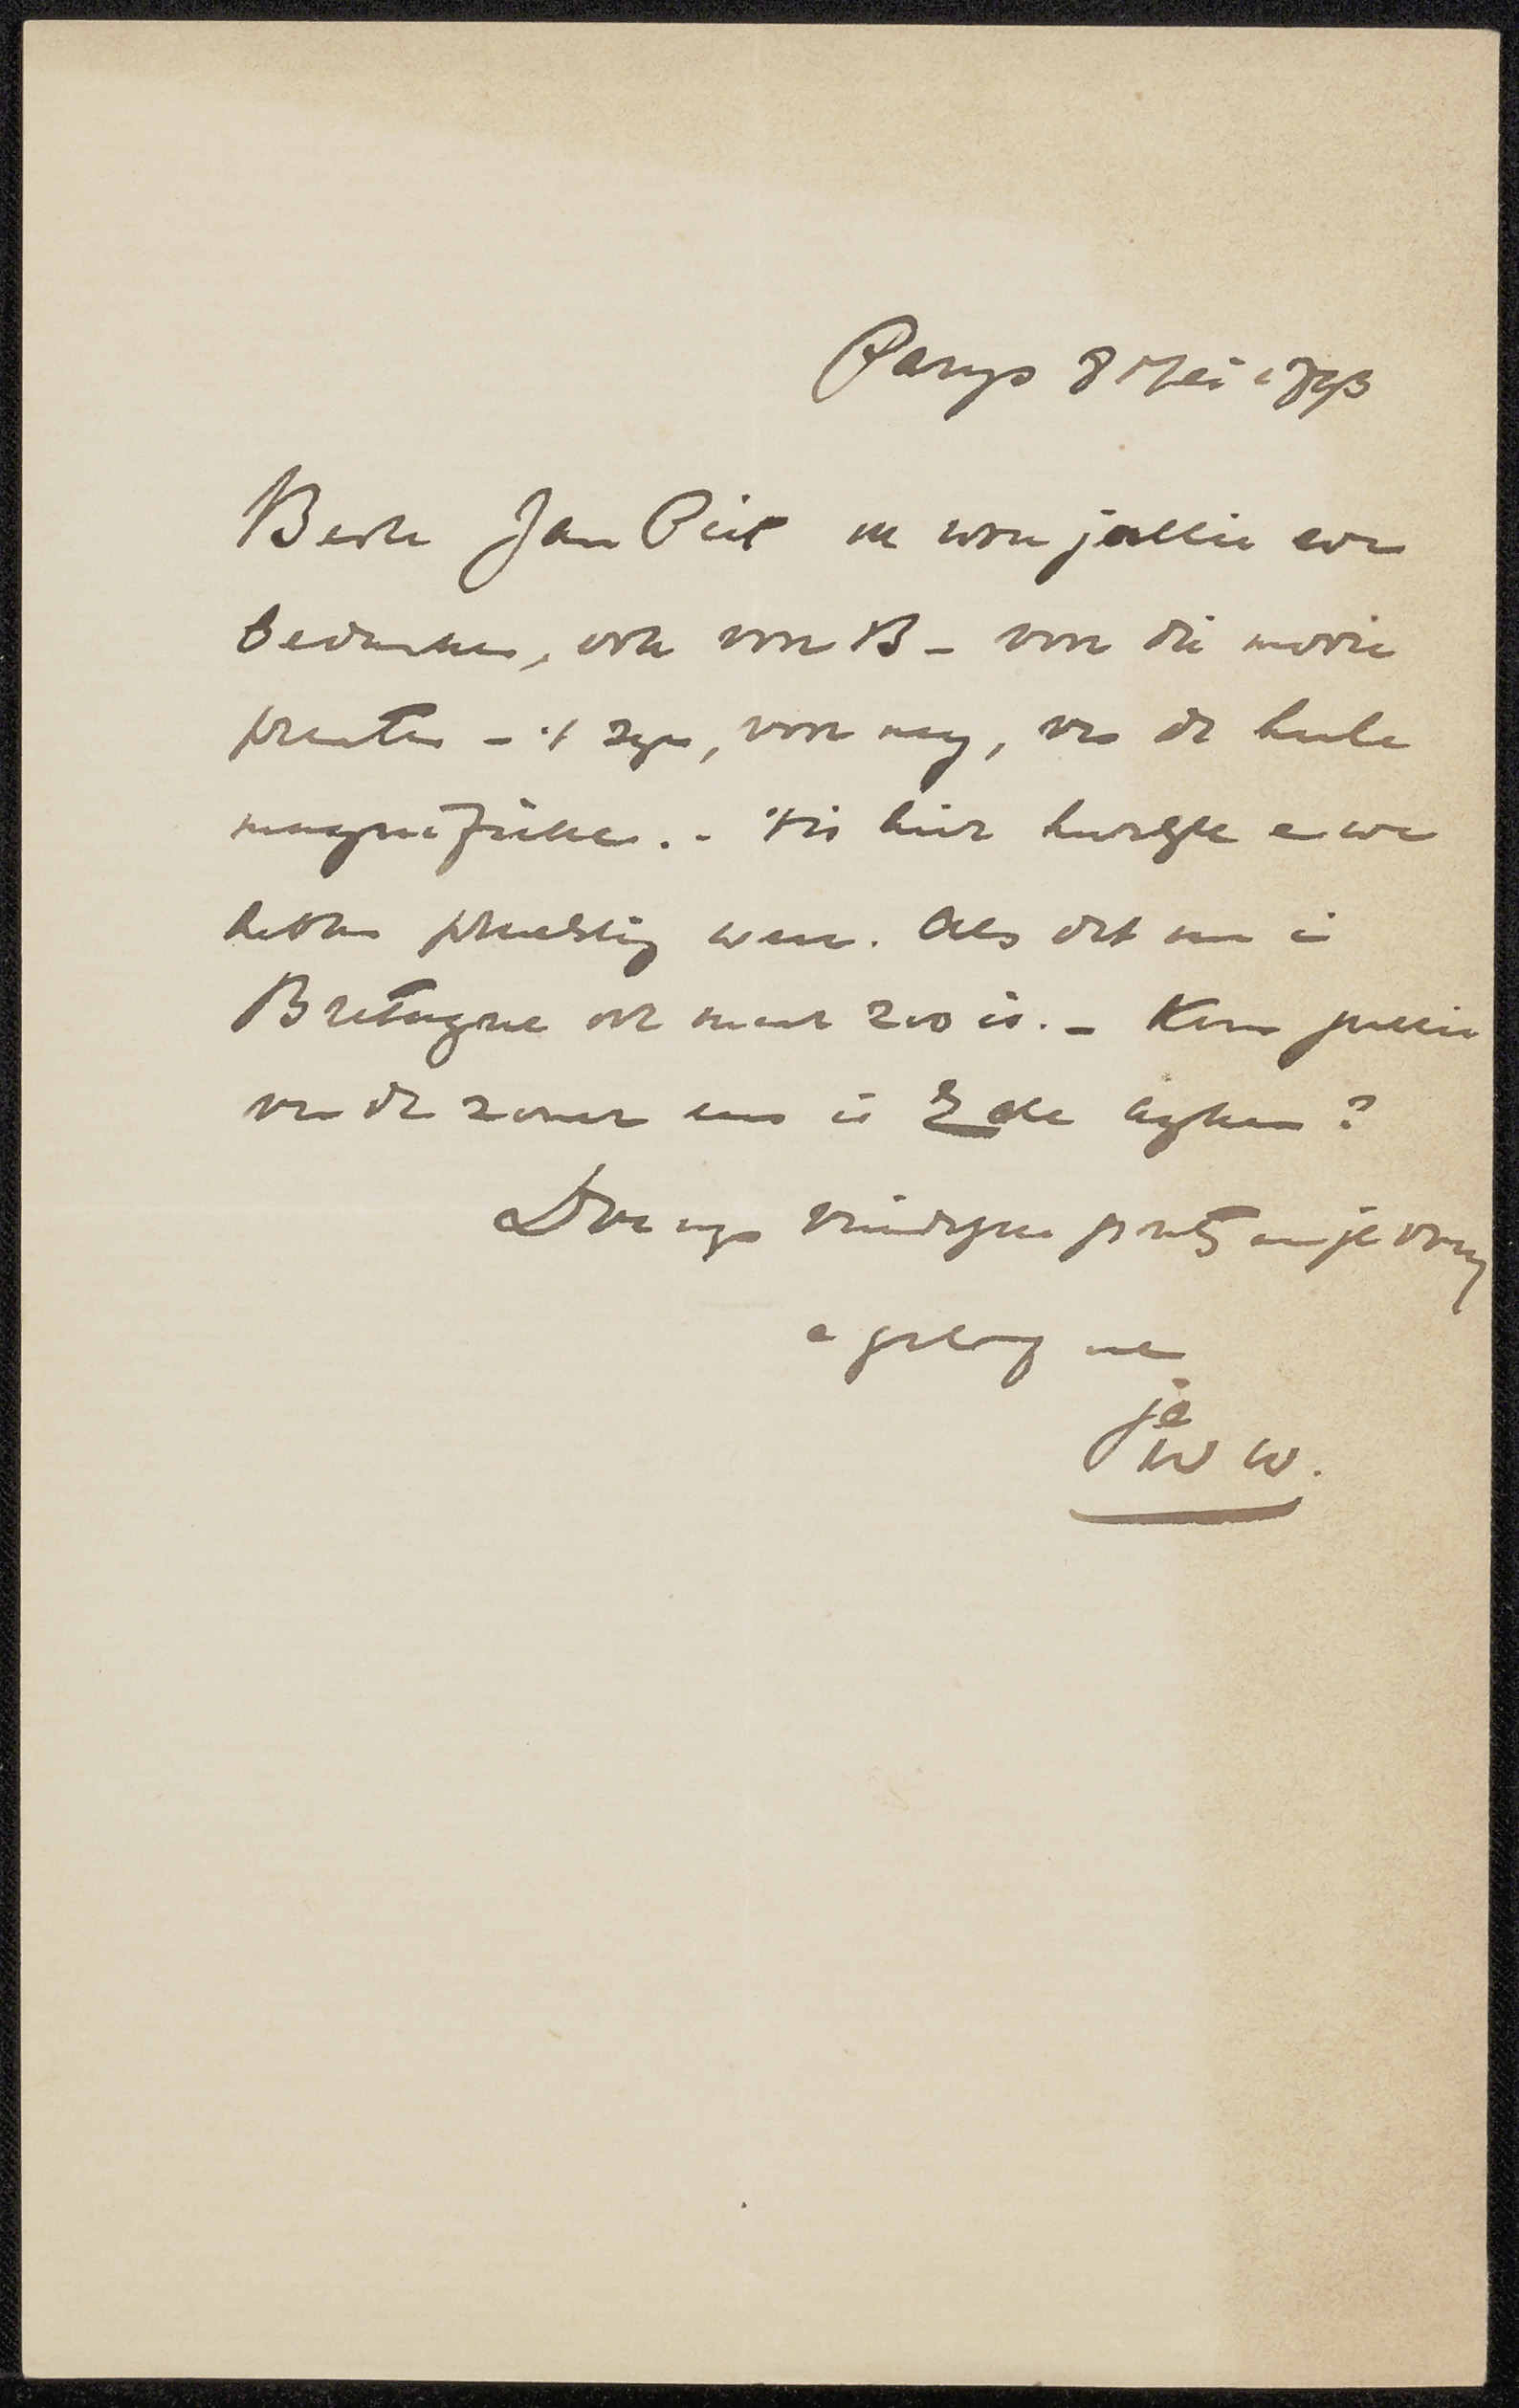 Parys 8 Mei 1893
Beste Jan Piet ik wou jullie eve
bedanken, ook voor B – voor die mooie
prenten – 't zyn, voor my, van de heele
magnifieke. – 't is hier heerlyk en we
hebben prachtig weer. Als dat nu in
Bretagne ook maar zoo is. – Kom jullie
van de zomer eens in Ede kyken?
vriendelyke groeten je
en geloof me
je
W W.